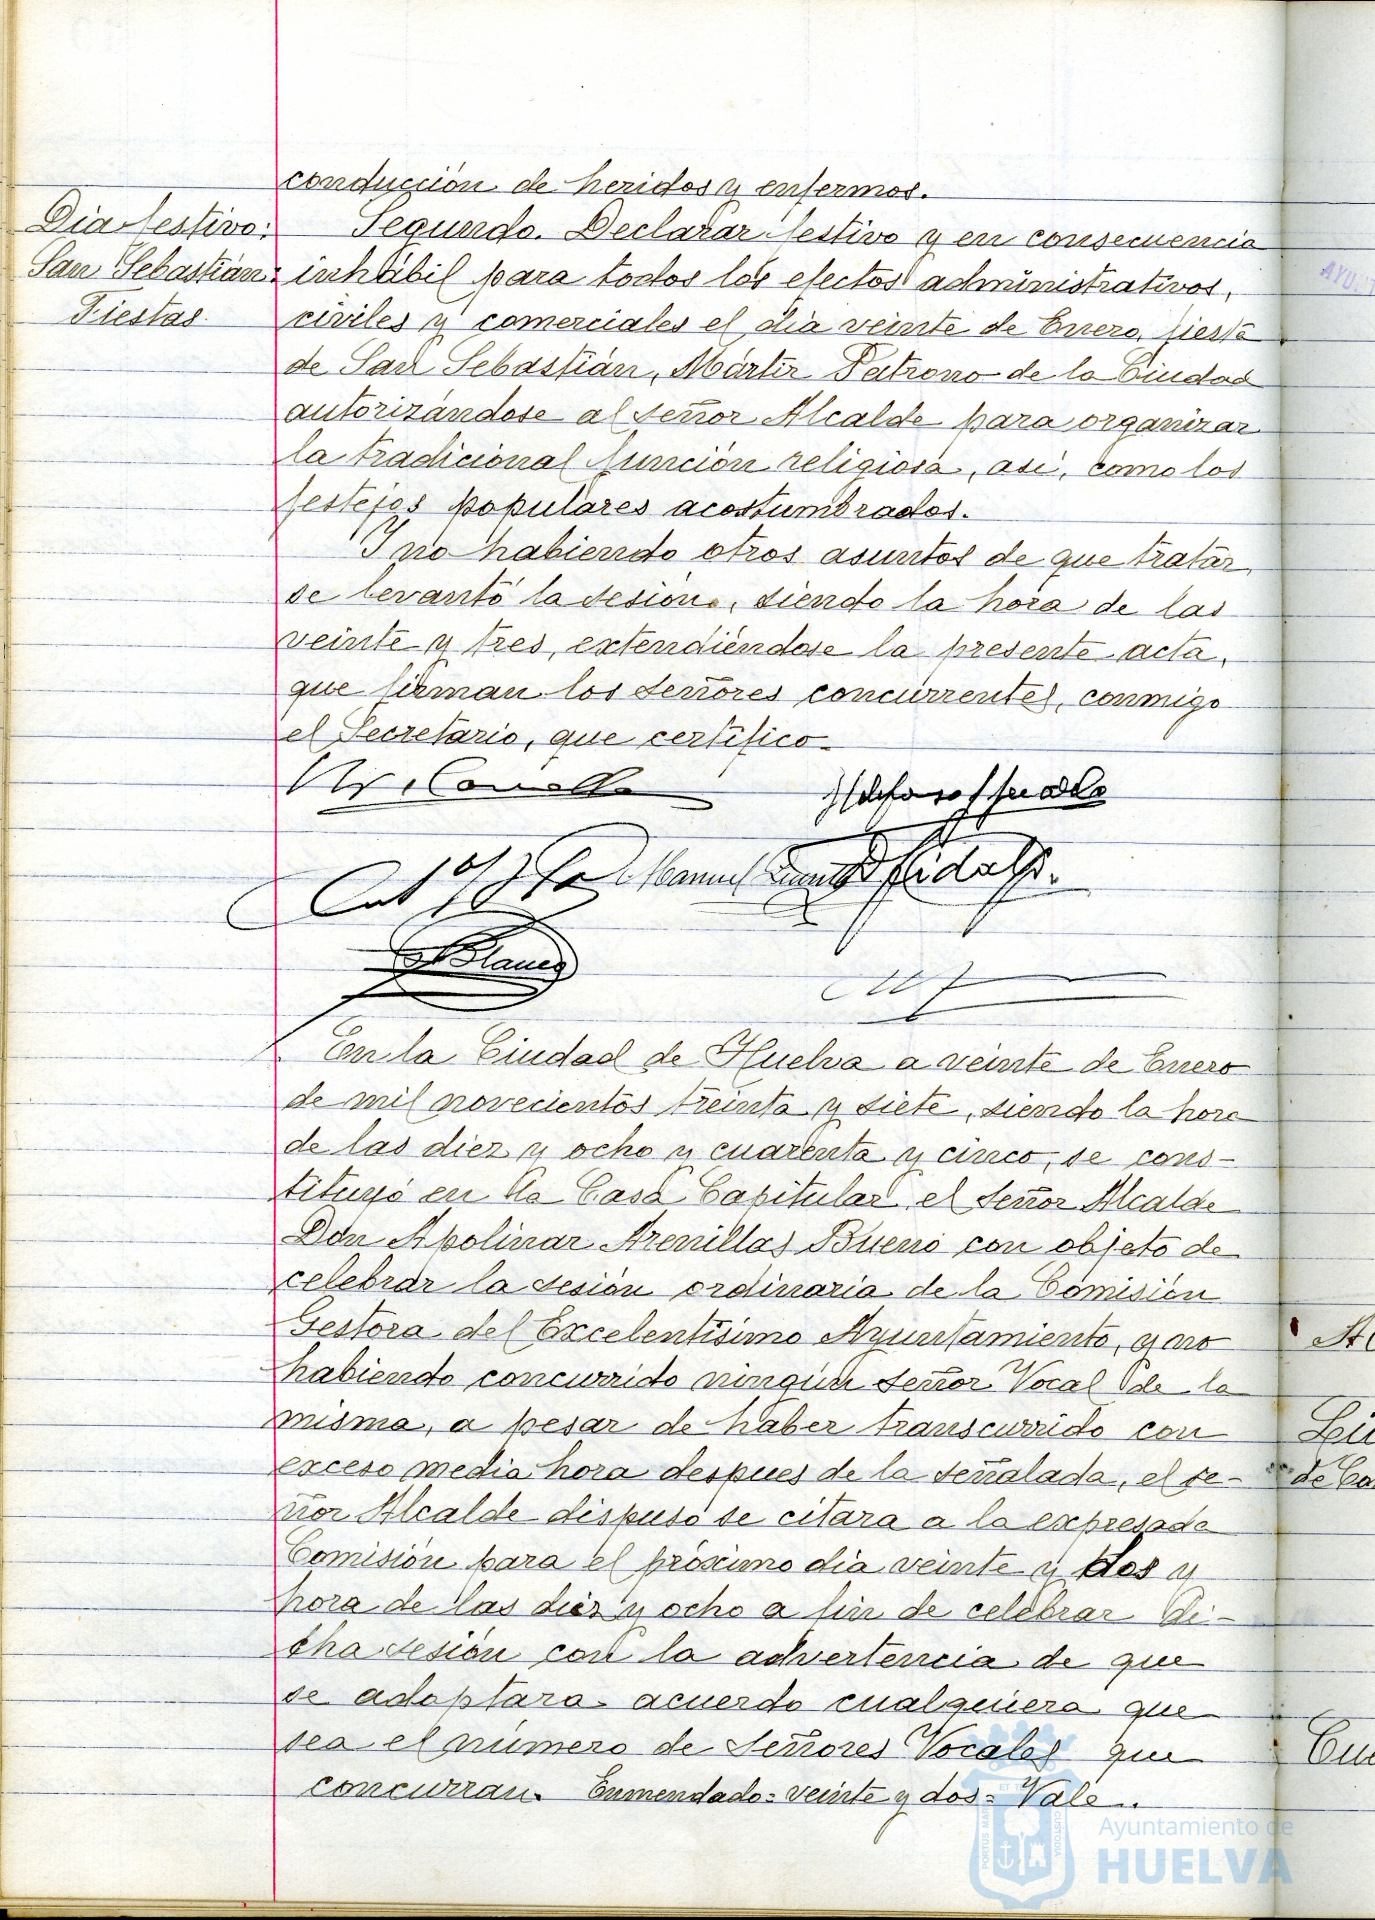 conducción de heridos y enfermos.
Dia festivo:
San Sebastián:
Fiestas.
Segundo. Declarar festivo y en consecuencia
inhábil para todos los efectos administrativos,
civiles y comerciales el dia veinte de Enero, fiesta
de San Sebastián, Mártir Patrono de la Ciudad
autorizándose al señor Alcalde para organizar
la tradicional función religiosa, así, como los
festejos populares acostumbrados.
Y no habiendo otros asuntos de que tratar,
se levantó la sesión, siendo la hora de las
veinte y tres, extendiéndose la presente acta,
que firman los señores concurrentes, conmigo
el Secretario, que certifico.
Manuel
Blanco
En la Ciudad de Huelva a veinte de Enero
de mil novecientos treinta y siete, siendo la hora
de las diez y ocho y cuarenta y cinco, se cons-
tituyó en la Casa Capitular el señor Alcalde
Don Apolinar Arenillas Bueno con objeto de
celebrar la sesión ordinaria de la Comisión
Gestora del Excelentísimo Ayuntamiento, y no
habiendo concurrido ningún señor Vocal de la
misma, a pesar de haber transcurrido con
exceso media hora despues de la señalada, el se-
ñor Alcalde dispuso se citara a la expresada
Comisión para el próximo dia veinte y dos y
hora de las diez y ocho a fin de celebrar di-
cha sesión con la advertencia de que
se adoptara acuerdo cualquiera que
sea el número de señores Vocales que
concurran. Enmendado = veinte y dos = Vale.
Ayuntamiento de
HUELVA